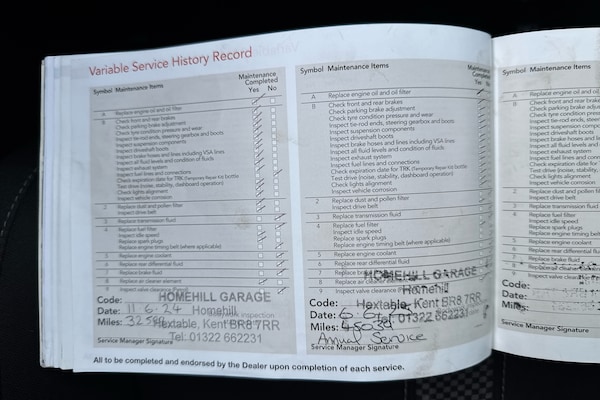 Variable Service History Record
Symbol Maintenance Items
Maintenance Completed
Yes No
A Replace engine oil and oil filter
B Check front and rear brakes
Check parking brake adjustment
Check tyre condition and pressure and wear
Inspect tie-rod ends, steering gearbox and boots
Inspect suspension components
Inspect driveshaft boots
Inspect brake hoses and lines including VSA lines
Inspect all fluid levels and condition of fluids
Inspect exhaust system
Inspect fuel lines and connections
Check expiration date for TRK (Temporary Repair Kit) bottle
Test drive (noise, stability, dashboard operation)
Check lights alignment
Inspect vehicle corrosion
2 Replace dust and pollen filter
Inspect drive belt
3 Replace transmission fluid
4 Replace fuel filter
Inspect idle speed
Replace spark plugs
Replace engine timing belt (where applicable)
5 Replace engine coolant
6 Replace rear differential fluid
7 Replace brake fluid
8 Replace air cleaner element
9 Inspect valve clearance (Petrol)
Code:
Date: 11.6.24
Miles:
HOMEHILL GARAGE
Homehill
Hextable, Kent BR8 7RR
Tel: 01322 662231
Service Manager Signature
Symbol Maintenance Items
Maintenance Completed
A Replace engine oil and oil filter
B Check front and rear brakes
Check parking brake adjustment
Check tyre condition pressure and wear
Inspect tie-rod ends, steering gearbox and boots
Inspect suspension components
Inspect driveshaft boots
Inspect brake hoses and lines including VSA lines
Inspect all fluid levels and condition of fluids
Inspect exhaust system
Inspect fuel lines and connections
Check expiration date for TRK (Temporary Repair Kit) bottle
Test drive (noise, stability, dashboard operation)
Check lights alignment
Inspect vehicle corrosion
2 Replace dust and pollen filter
Inspect drive belt
3 Replace transmission fluid
4 Replace fuel filter
Inspect idle speed
Replace spark plugs
Replace engine timing belt (where applicable)
5 Replace engine coolant
6 Replace rear differential fluid
7 Replace brake fluid
8 Replace air cleaner element
9 Inspect valve clearance (Petrol)
Code:
Date:
Miles:
HOMEHILL GARAGE
Homehill
Hextable, Kent BR8 7RR
Tel: 01322 662231
Annual Service
Service Manager Signature
Symbol Maintenance Items
A Replace engine oil and oil
B Check front and rear brakes
Check parking brake
Check tyre condition
Inspect tie-rod ends, steering
Inspect suspension
Inspect driveshaft boots
Inspect brake hoses and
Inspect all fluid levels
Inspect exhaust system
Inspect fuel lines and
Check expiration date for
Test drive (noise, stability,
Check lights alignment
Inspect vehicle corrosion
2 Replace dust and pollen
Inspect drive belt
3 Replace transmission fluid
4 Replace fuel filter
Inspect idle speed
Replace spark plugs
Replace engine timing belt
5 Replace engine coolant
6 Replace rear differential
7 Replace brake fluid
8 Replace air cleaner
9 Inspect valve clearance
Code:
Date:
Miles:
Service Manager Signature
All to be completed and endorsed by the Dealer upon completion of each service.